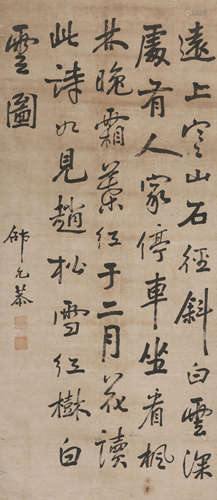 遠上寒山石徑斜白雲深
處有人家停車坐看楓
林晚霜葉紅于二月花讀
此詩如見趙松雪紅樹白
雲圖
邵